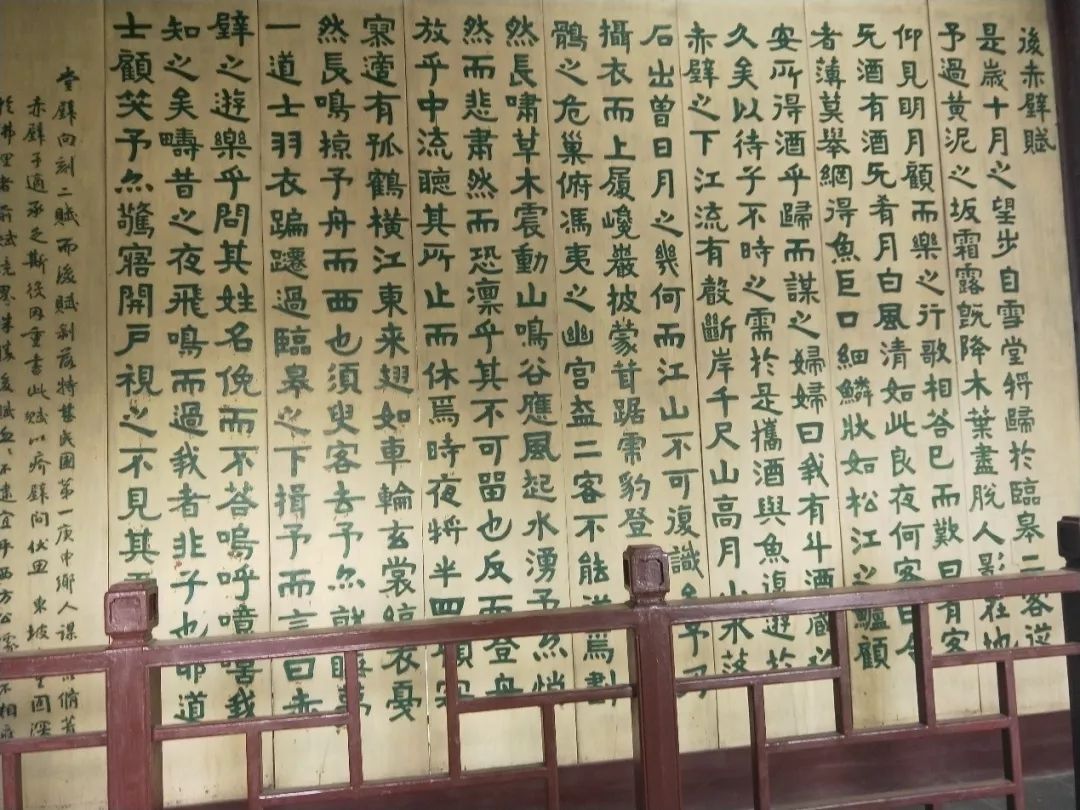 後赤壁賦
是歲十月之望步自雪堂將歸於臨皋二客從
予過黃泥之坂霜露既降木葉盡脫人影在地
仰見明月顧而樂之行歌相答已而歎曰有客
无酒有酒无肴月白風清如此良夜何客曰今
者薄莫舉網得魚巨口細鱗狀如松江之鱸顧
安所得酒乎歸而謀之婦婦曰我有斗酒藏之
久矣以待子不時之需於是攜酒與魚復遊於
赤壁之下江流有聲斷岸千尺山高月小水落
石出曾日月之幾何而江山不可復識矣予乃
攝衣而上履巉巖披蒙茸踞虎豹登
鶻之危巢俯馮夷之幽宮蓋二客不能從焉劃
然長嘯草木震動山鳴谷應風起水湧予亦悄
然而悲肅然而恐凜乎其不可留也反而登舟
放乎中流聽其所止而休焉時夜將半四顧寂
寥適有孤鶴橫江東来翅如車輪玄裳縞衣戛
然長鳴掠予舟而西也須臾客去予亦就睡夢
一道士羽衣蹁躚過臨皋之下揖予而言曰赤
壁之遊樂乎問其姓名俛而不答嗚呼噫嘻我
知之矣疇昔之夜飛鳴而過我者非子也耶道
士顧笑予亦驚寤開戶視之不見其
堂壁向刻二賦而後賦剝落特甚民國第一庚申鄉人謀
赤壁予適承乏斯役因重書此賦以